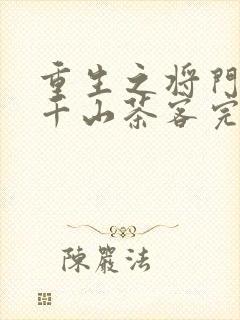 重生之将門
千山茶客完
陳嚴法